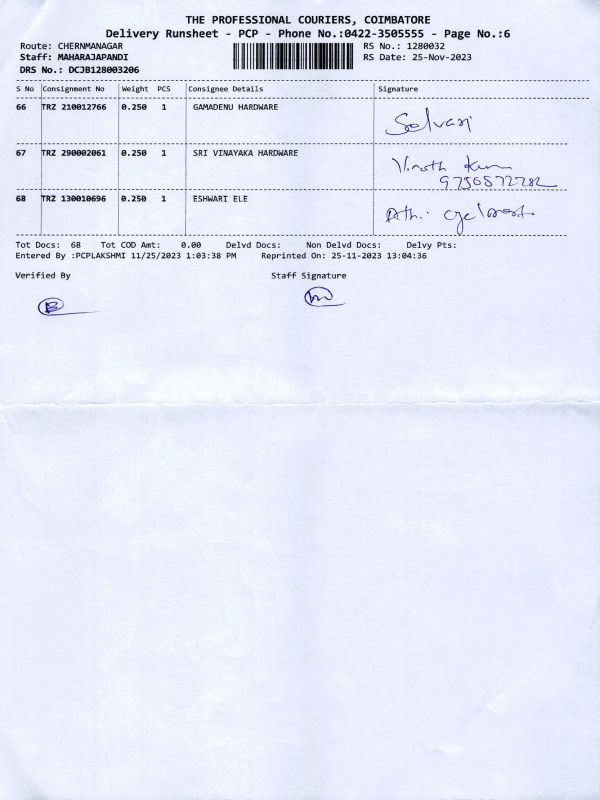 THE PROFESSIONAL COURIERS, COIMBATORE
Delivery Runsheet - PCP - Phone No.:0422-3505555 - Page No.:6
Route: CHERNMANAGAR RS No.: 1280032
Staff: MAHARAJAPANDI RS Date: 25-Nov-2023
DRS No.: DCJB128003206
S No Consignment No Weight PCS Consignee Details Signature
66 TRZ 210012766 0.250 1 GAMADENU HARDWARE
Selvari
67 TRZ 290002061 0.250 1 SRI VINAYAKA HARDWARE
Vinoth Kum
68 TRZ 130010696 0.250 1 ESHWARI ELE
Tot Docs: 68 Tot COD Amt: 0.00 Delvd Docs: Non Delvd Docs: Delvy Pts:
Entered By :PCPLAKSHMI 11/25/2023 1:03:38 PM Reprinted On: 25-11-2023 13:04:36
Verified By Staff Signature